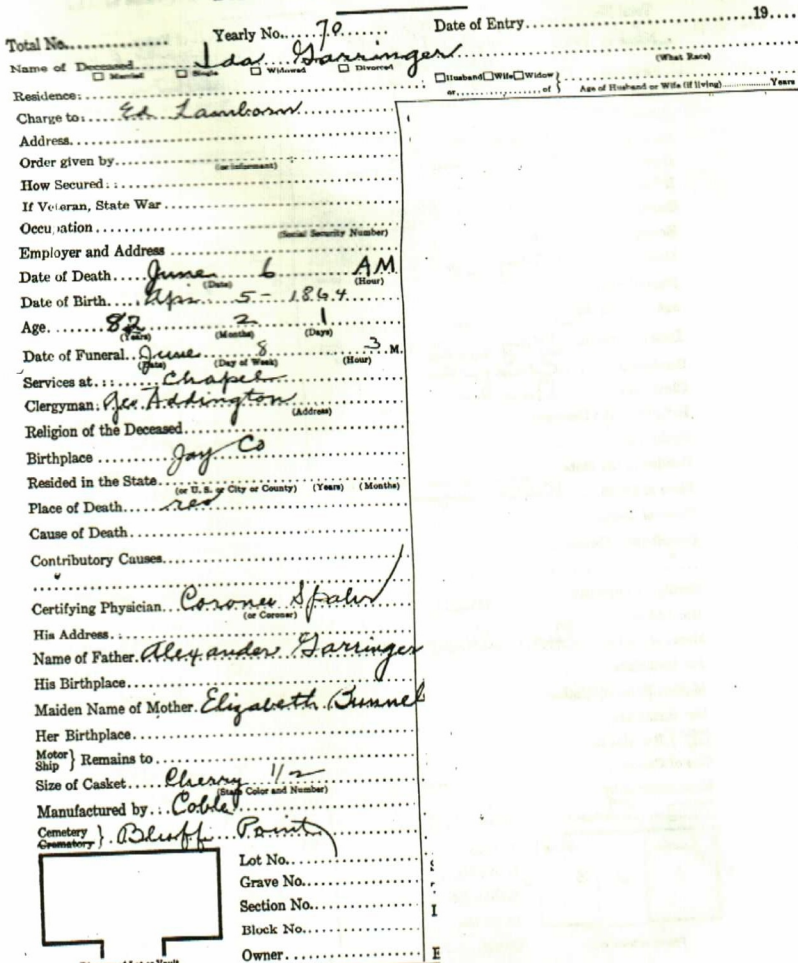 Total No. Yearly No. 70 Date of Entry 19
Name of Deceased Ida Garringer (What Race)
Married Single Widowed Divorced Husband Wife Widow
or of Age of Husband or Wife (if living) Years
Residence:
Charge to: Ed Lamborn
Address
Order given by (or informant)
How Secured:
If Veteran, State War
Occupation (Social Security Number)
Employer and Address
Date of Death June 6 AM
(Date) (Hour)
Date of Birth Apr. 5 - 1864
Age 82 2 1
(Years) (Months) (Days)
Date of Funeral June 8 3 M.
(Date) (Day of Week) (Hour)
Services at: Chapel
Clergyman: Geo. Addington
(Address)
Religion of the Deceased
Birthplace Jay Co
Resided in the State
(or U. S. or City or County) (Years) (Months)
Place of Death res
Cause of Death
Contributory Causes
Certifying Physician Coroner Spahr
(or Coroner)
His Address
Name of Father Alexander Garringer
His Birthplace
Maiden Name of Mother Elizabeth Bunnel
Her Birthplace
Motor Ship } Remains to
Size of Casket Cherry 1/2
(State Color and Number)
Manufactured by Coble
Cemetery Crematory } Bluff Point
Lot No.
Grave No.
Section No.
Block No.
Owner